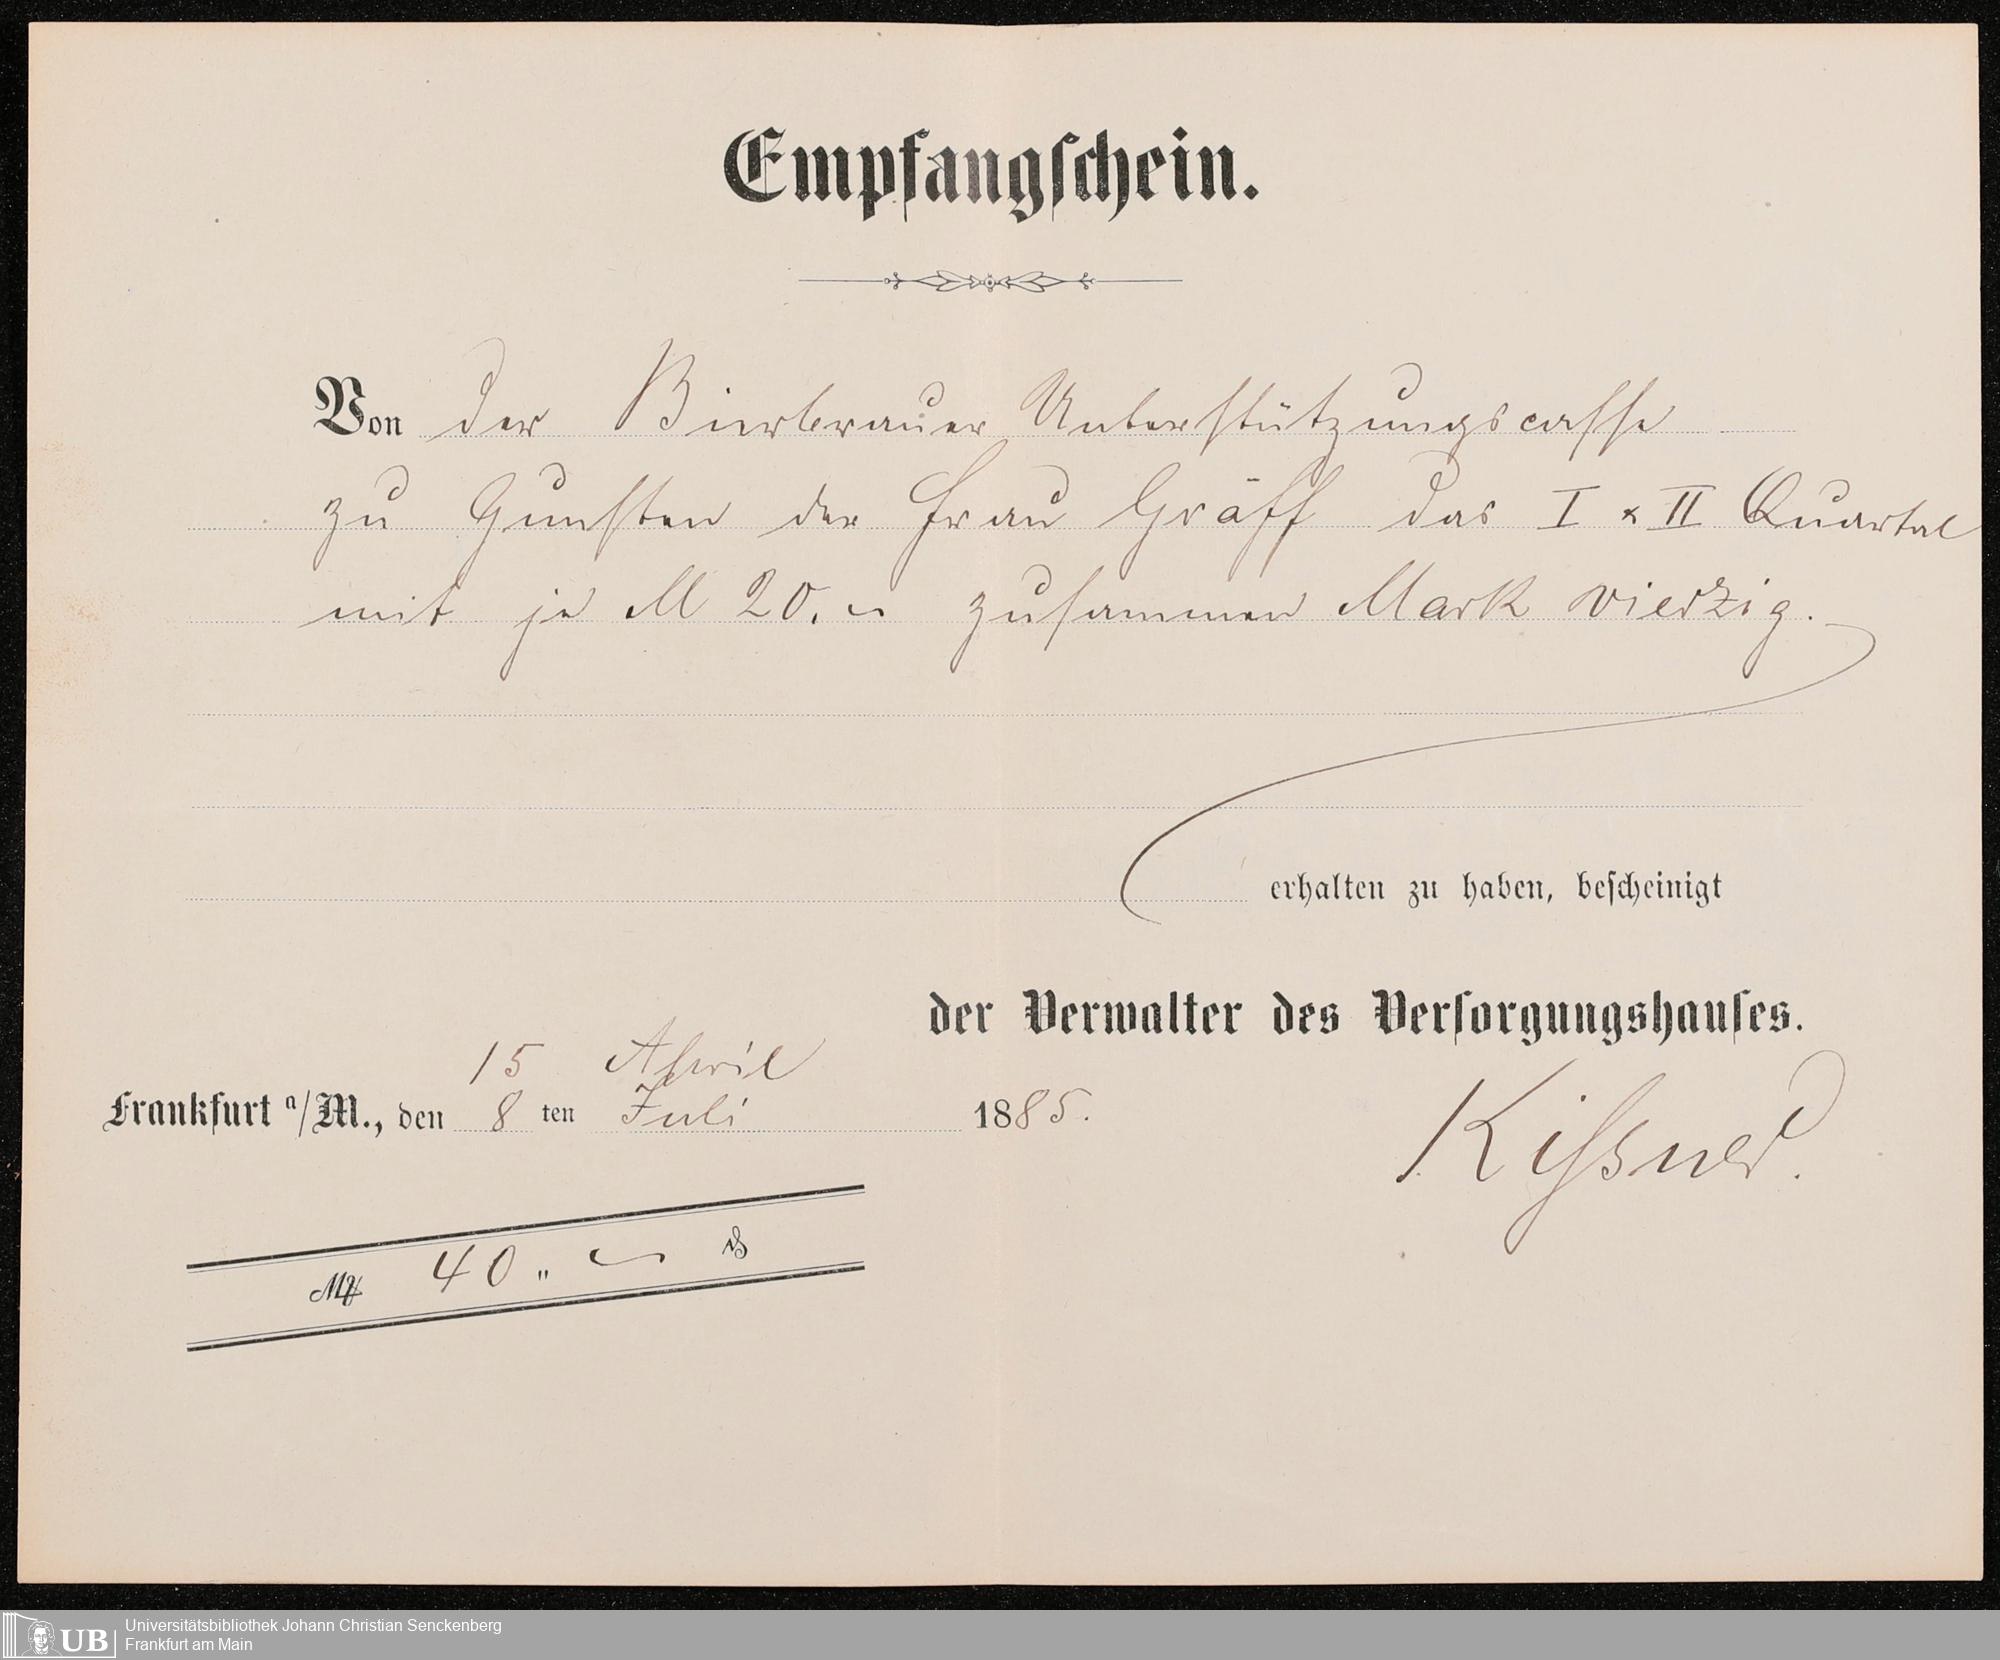 Empfangſchein.
Von der Bierbrauer Unterſtützungscaſſe
zu Gunſten der Frau Gräff das I & II Quartal
mit je M 20. ~ zuſammen Mark vierzig.
erhalten zu haben, beſcheinigt
der Verwalter des Verſorgungshauſes.
15 April
Frankfurt a/M., den 8 ten Juli 1885.
Kiſsner.
M 40 „ ~ ₰
UB
Universitätsbibliothek Johann Christian Senckenberg
Frankfurt am Main